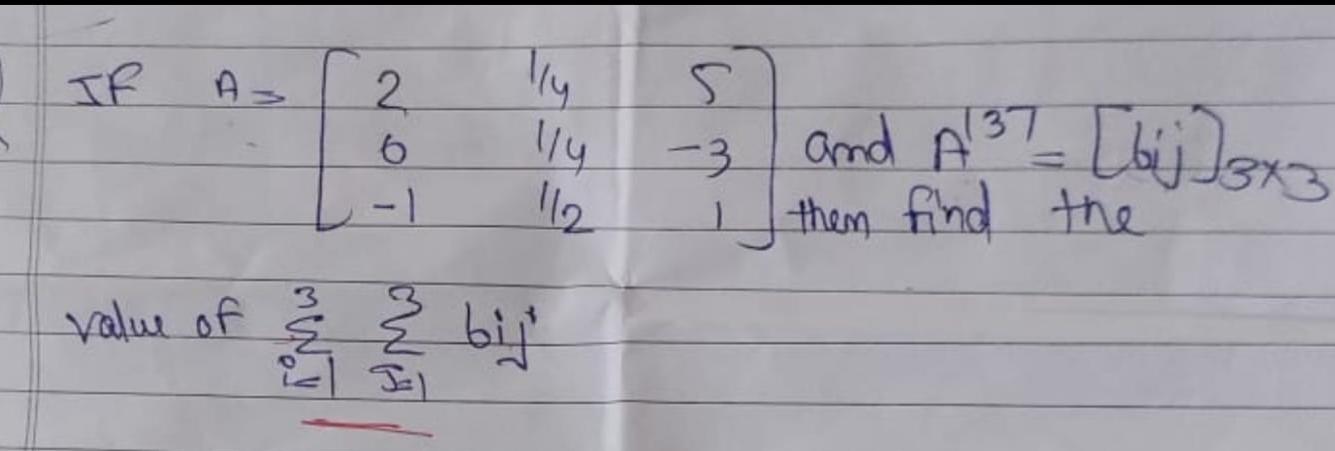 If A = [ 2 1/4 5
0 1/4 -3
-1 1/2 1 ] and A^137 = [bij]3×3
then find the
value of 3 Σ i=1 3 Σ J=1 bij